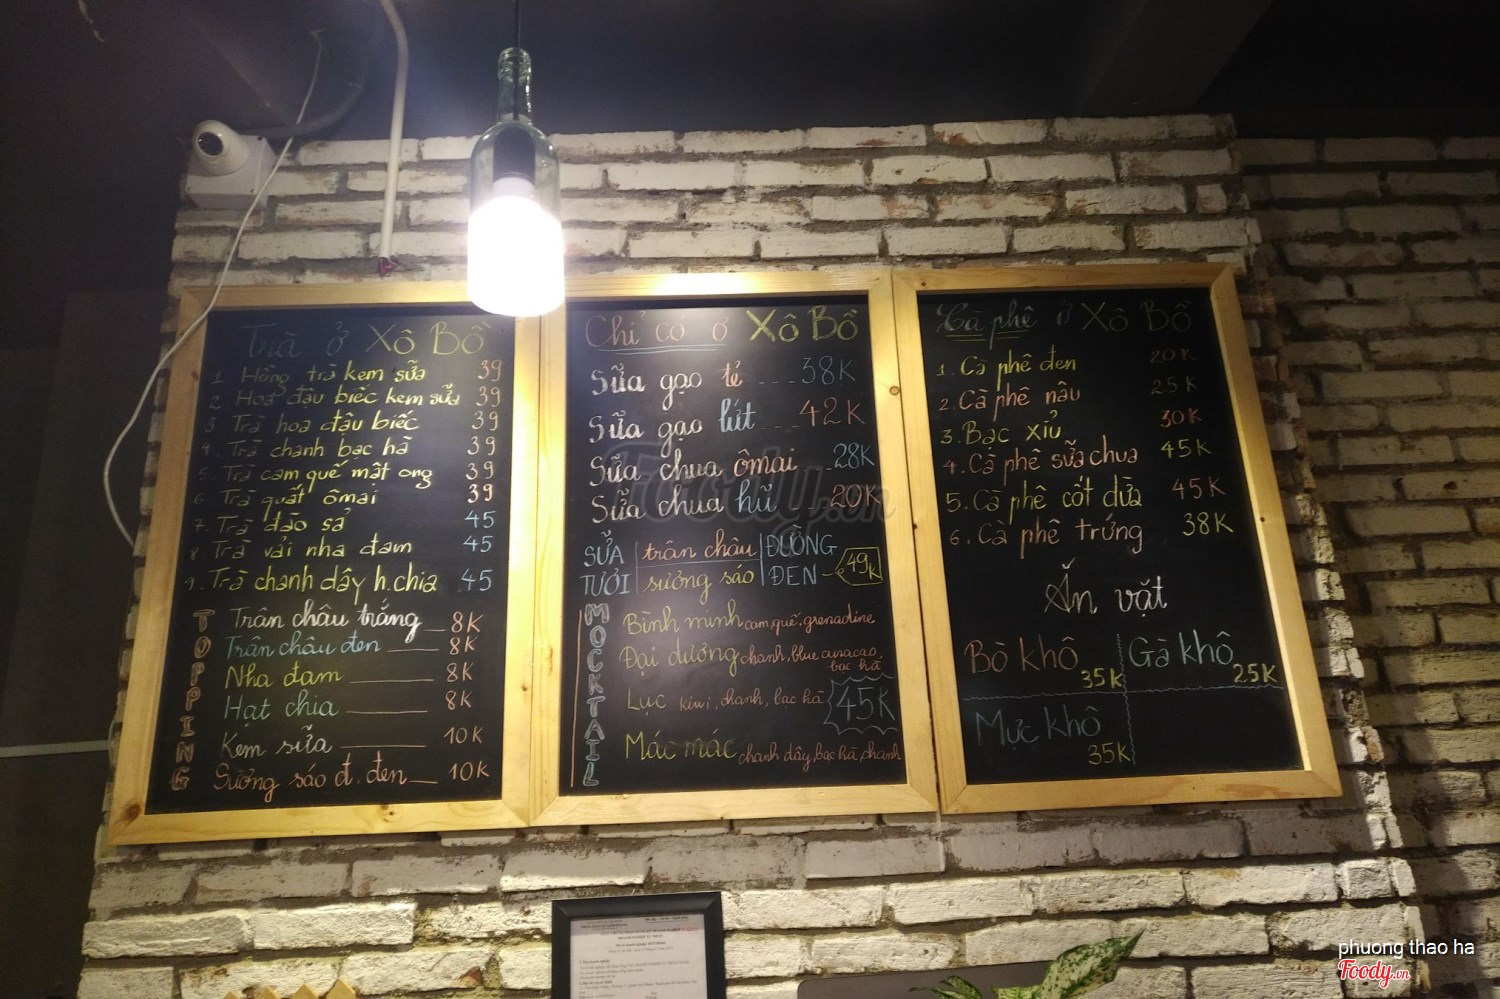 Trà ở Xô Bồ
1. Hồng trà kem sữa 39
2 Hoa đậu biếc kem sữa 39
3. Trà hoa đậu biếc 39
4. Trà chanh bạc hà 39
5. Trà cam quế mật ong 39
6 Trà quất ômai 39
7. Trà đào sả 45
8 Trà vải nha đam 45
9. Trà chanh dây h.chia 45
TOPPING
Trân châu trắng 8K
Trân châu đen 8K
Nha đam 8K
Hạt chia 8K
Kem sữa 10K
Sương sáo đ. đen 10K
Chỉ có ở Xô Bồ
Sữa gạo tẻ 38K
Sữa gạo lứt 42K
Sữa chua ômai 28K
Sữa chua hũ 20K
SỮA TƯƠI
trân châu
sương sáo
ĐƯỜNG ĐEN 49K
MOCKTAIL
Bình minh cam, quế, grenadine
Đại dương chanh, blue curacao, bạc hà
Lục kiwi, chanh, bạc hà
45K
Mác mác chanh dây, bạc hà, chanh
Cà phê ở Xô Bồ
1. Cà phê đen 20K
2. Cà phê nâu 25K
3. Bạc xỉu 30K
4. Cà phê sữa chua 45K
5. Cà phê cốt dừa 45K
6. Cà phê trứng 38K
Ăn vặt
Bò khô 35K
Gà khô 25K
Mực khô 35K
Foody.vn
phuong thao ha
Foody.vn